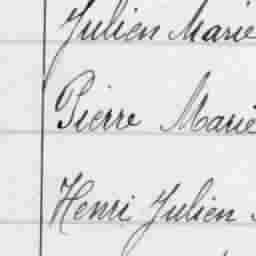 Julien Marie
Pierre Marie
Henri Julien